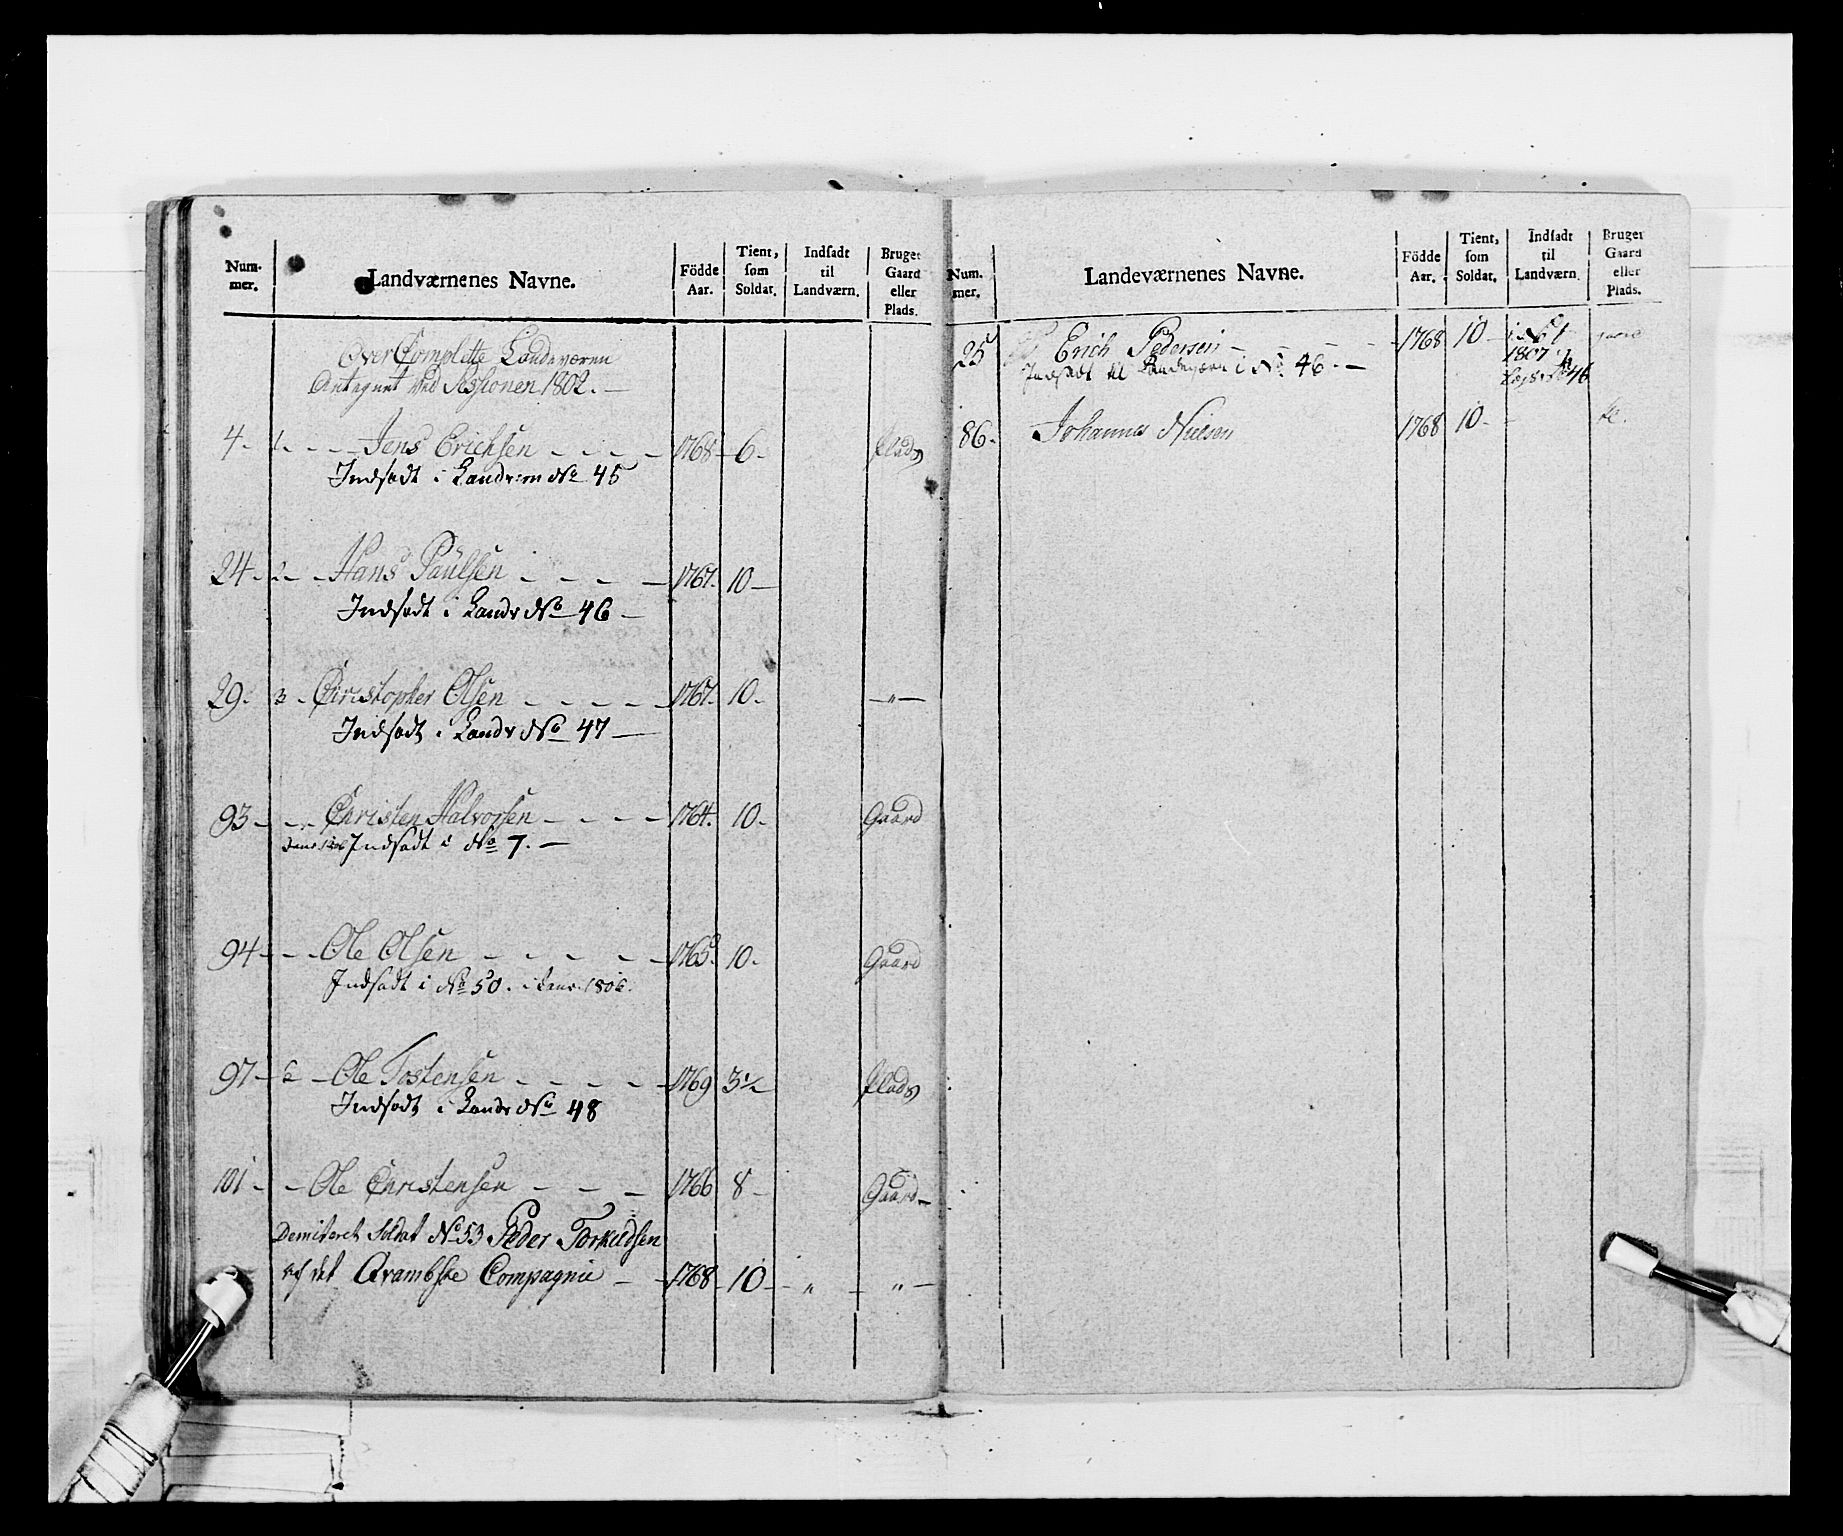 Num-
mer.
Landværnenes Navne.
Födde
Aar.
Tient,
som
Soldat.
Indsadt
til
Landværn.
Bruger
Gaard
eller
Plads.
Over Complette Landeværn
Antegnet ved Sessionen 1802. —
4. 1. - - - Jens Erichsen - - - - 1768 - 6. Plads
Indsadt i Landv:rn No 45
24. 2. - Hans Paulsen - - - - 1767. 10 —
Indsadt i Landv No 46 —
29. 3 - Christopher Olsen - - - - 1767. 10. — " —
Indsadt i Landv No 47 —
93 - - - Christen Halvorsen - - - - 1764. 10. Gaard
Indsadt i No 7. —
94 - - - Ole Olsen - - - - - 1765. 10. Gaard
Indsadt i No 50. i 1806.
97 - - Ole Tostensen - - - - - 1769 3½ Plads
Indsadt i Landv No 48
101 - - Ole Christensen - - - 1766 8 - Gaard -
Demiteret Soldat No 53 Peder Torkildsen
af det Arambske Compagnie - - 1768 - 10 - " - " -
Num-
mer.
Landeværnenes Navne.
Födde
Aar.
Tient,
som
Soldat.
Indsadt
til
Landværn.
Bruger
Gaard
eller
Plads.
25 Erich Pedersen - - - - 1768 10 -
1807
Indsadt til Landeværn i No. 46. —
No 46
86. Johannes Nielsen 1768 10 - -